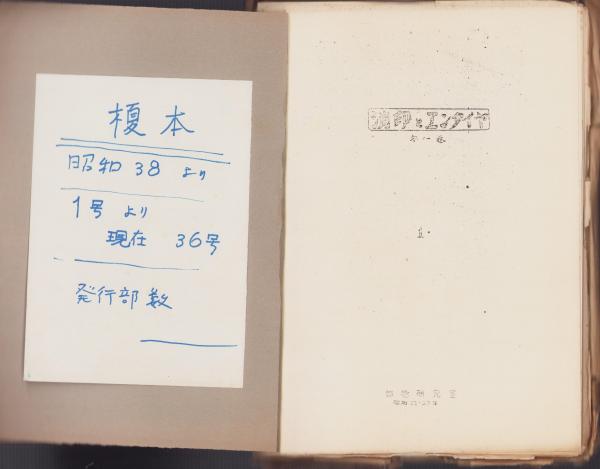 榎本
昭和 38 より
1号 より
現在 36号
発行部数
消印とエンタイヤ
第一巻
1.